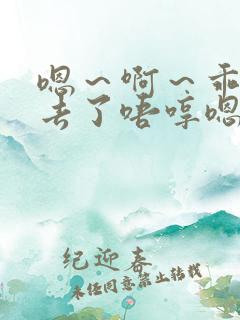 嗯～啊～乖
丢了唔哼嗯
纪迎春
未经同意禁止转载